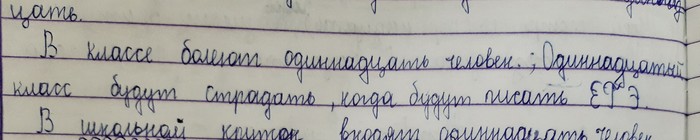 цать.
В классе болеют одиннадцать человек.; Одиннадцатый
класс будут страдать, когда будут писать ЕГЭ.
В школьной входят одиннадцать человек